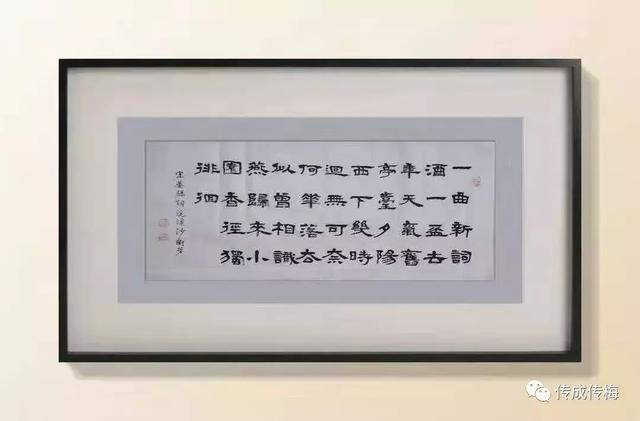 一曲新詞
酒一盃去
年天氣舊
亭臺夕陽
西下幾時
迴無可奈
何華落去
似曾相識
燕歸來小
園香徑獨
徘徊
宋晏殊詞浣溪沙
传成传梅